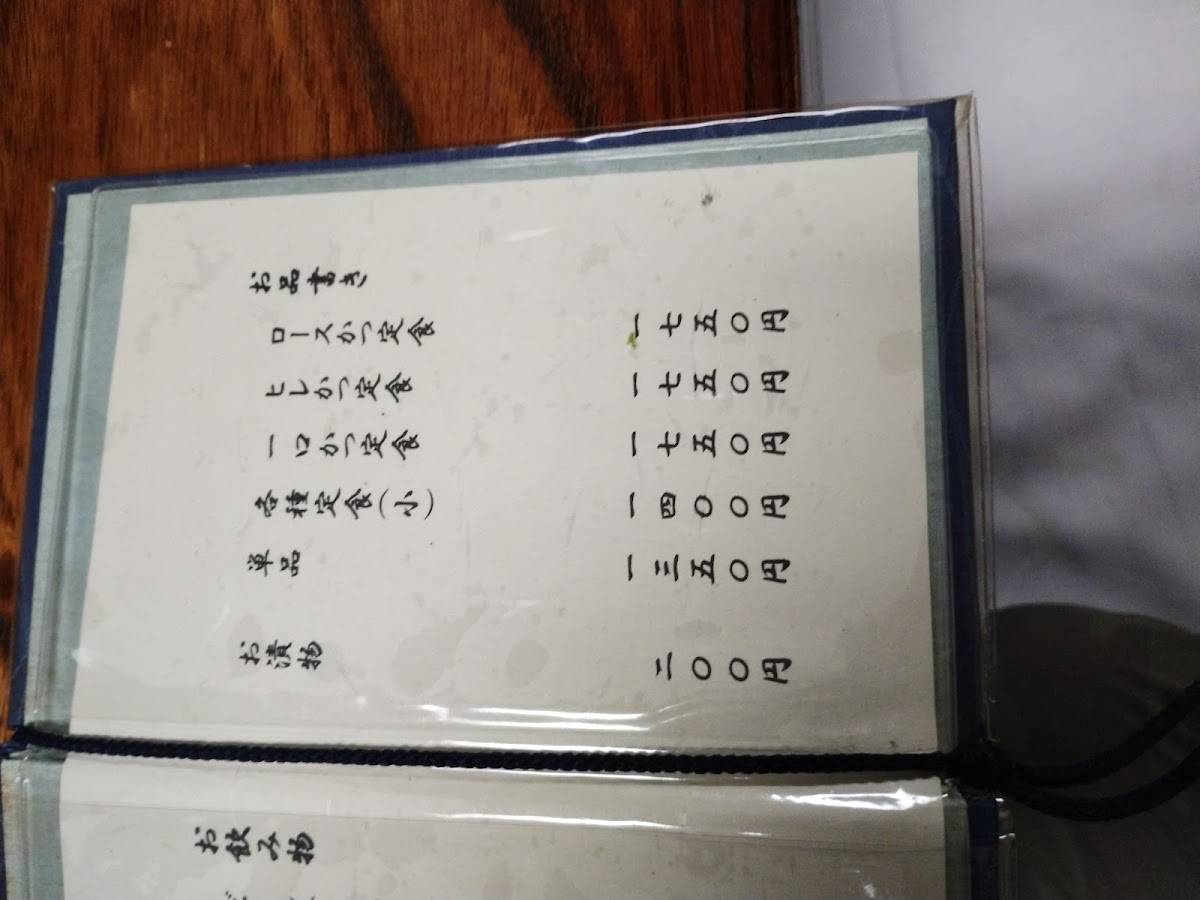 お品書き
ロースかつ定食 一七五〇円
ヒレかつ定食 一七五〇円
一口かつ定食 一七五〇円
各種定食(小) 一四〇〇円
単品 一三五〇円
お漬物 二〇〇円
お飲み物